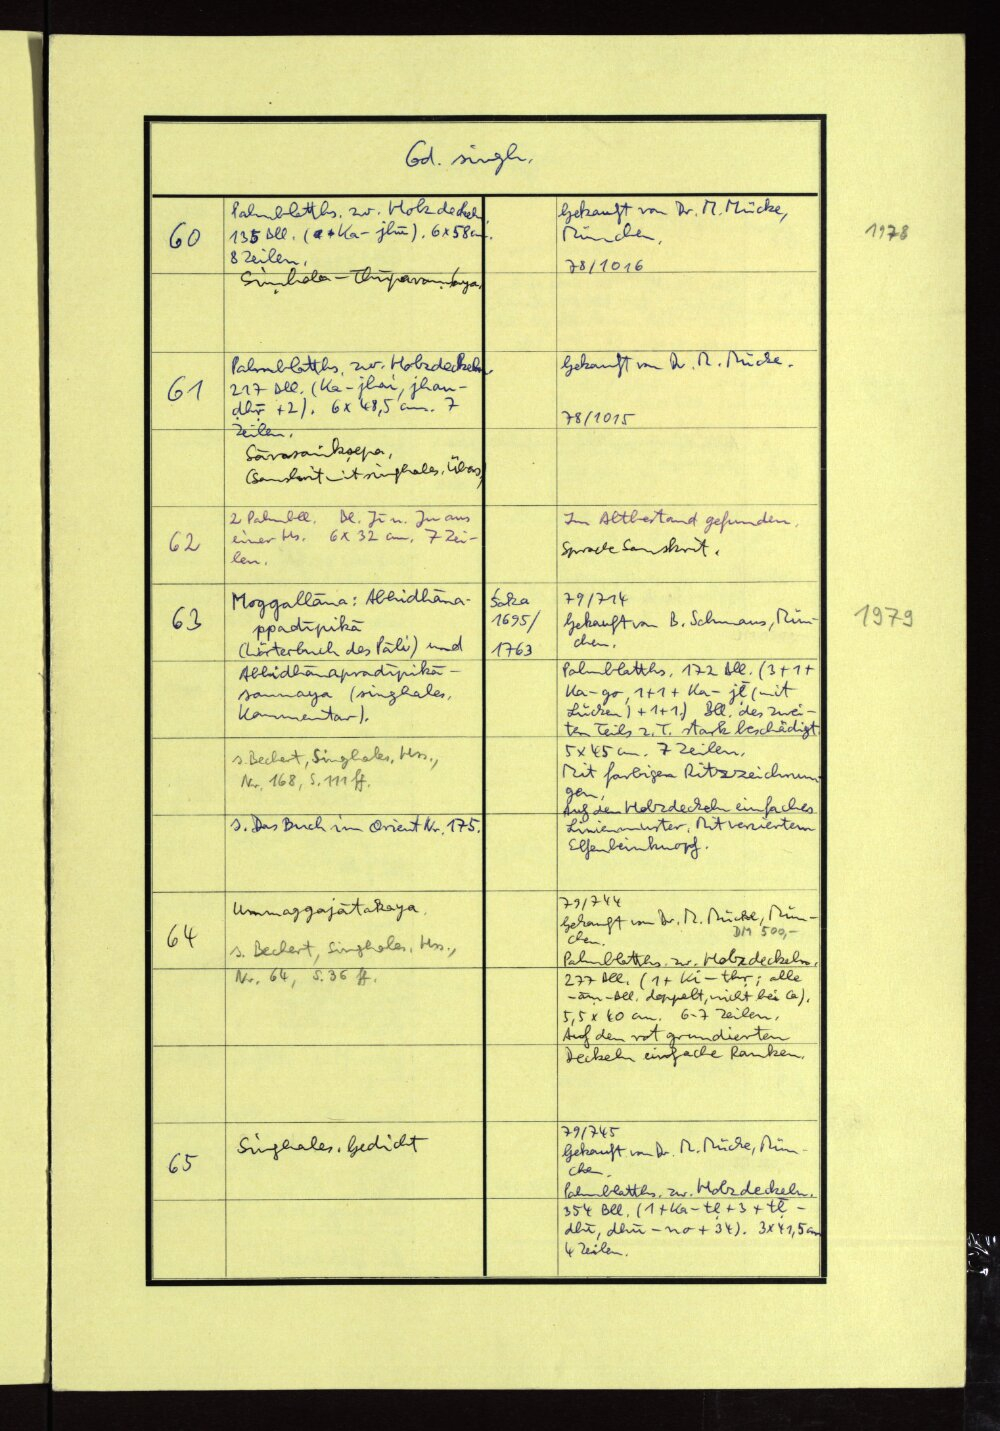 Cod. singh.
60
Palmblatths. zw. Holzdeckeln.
135 Bll. (a + Ka – jhū). 6 x 58 cm.
8 Zeilen.
Siṃhala – Thūpavaṃsaya.
Gekauft von Dr. M. Mücke,
München.
78/1016
1978
61
Palmblatths. zw. Holzdeckeln
217 Bll. (Ka – jhai, jhau –
ḍhṛ +2). 6 x 48,5 cm. 7
Zeilen.
Sārasaṅkṣepa.
(Sanskrit mit singhales. Übers.)
Gekauft von Dr. M. Mücke.
78/1015
62
2 Palmbll. Bl. Ji u. Ju aus
einer Hs. 6 x 32 cm. 7 Zei-
len.
Im Altbestand gefunden.
Sprache Sanskrit.
63
Moggallāna: Abhidhāna-
ppadīpikā
(Wörterbuch des Pāli) und
Abhidhānapradīpikā –
sannaya (singhales.
Kommentar).
s. Bechert, Singhales. Hss.,
Nr. 168, S. 111 ff.
s. Das Buch im Orient Nr. 175.
Śaka
1695/
1763
79/714
Gekauft von B. Schmaus, Mün-
chen.
Palmblatths. 172 Bll. (3+1+
Ka – go, 1+1+ Ka – jḹ (mit
Lücken) +1+1.) Bll. des zwei-
ten Teils z. T. stark beschädigt.
5 x 45 cm. 7 Zeilen.
Mit farbigen Ritzzeichnun-
gen.
Auf den Holzdeckeln einfaches
Linienmuster. Mit verziertem
Elfenbeinknopf.
1979
64
Ummaggajātakaya.
s. Bechert, Singhales. Hss.,
Nr. 64, S. 36 ff.
79/744
Gekauft von Dr. M. Mücke, Mün-
chen.
DM 500,–
Palmblatths. zw. Holzdeckeln.
277 Bll. (1 + Ki – thṛ; alle
-aṃ-Bll. doppelt, nicht bei Ca).
5,5 x 40 cm. 6-7 Zeilen.
Auf den rot grundierten
Deckeln einfache Ranken.
65
Singhales. Gedicht
79/745
Gekauft von Dr. M. Mücke, Mün-
chen.
Palmblatths. zw. Holzdeckeln.
354 Bll. (1 + Ka – tḷ + 3 + tḹ –
dhī, dhū – no + 34). 3 x 41,5 cm
4 Zeilen.